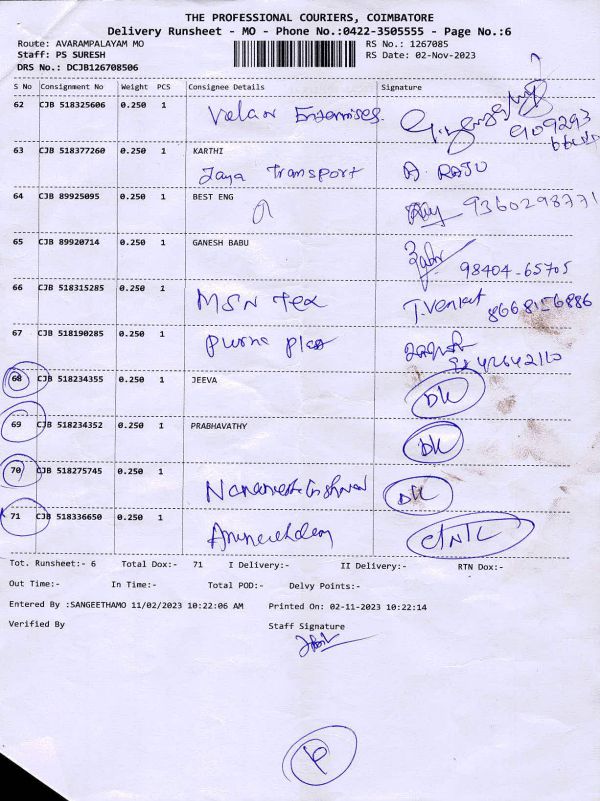 THE PROFESSIONAL COURIERS, COIMBATORE
Delivery Runsheet - MO - Phone No.:0422-3505555 - Page No.:6
Route: AVARAMPALAYAM MO
Staff: PS SURESH
DRS No.: DCJB126708506
RS No.: 1267085
RS Date: 02-Nov-2023
S No Consignment No Weight PCS Consignee Details Signature
62 CJB 518325606 0.250 1 Velan Enterprises
63 CJB 518377260 0.250 1 KARTHI
Jaya Transport A. RAJU
64 CJB 89925095 0.250 1 BEST ENG
9360298771
65 CJB 89920714 0.250 1 GANESH BABU
98404-65705
66 CJB 518315285 0.250 1 MSN Tex T.Venkat 8668156886
67 CJB 518190285 0.250 1 Purna Plas
9842642110
68 CJB 518234355 0.250 1 JEEVA DL
69 CJB 518234352 0.250 1 PRABHAVATHY DL
70 CJB 518275745 0.250 1 DL
71 CJB 518336650 0.250 1
Tot. Runsheet:- 6 Total Dox:- 71 I Delivery:- II Delivery:- RTN Dox:-
Out Time:- In Time:- Total POD:- Delvy Points:-
Entered By :SANGEETHAMO 11/02/2023 10:22:06 AM Printed On: 02-11-2023 10:22:14
Verified By Staff Signature
P